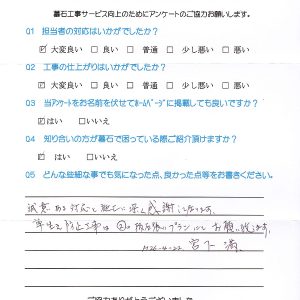 墓石工事サービス向上のためにアンケートのご協力お願いします。
Q1 担当者の対応はいかがでしたか?
☑ 大変良い □ 良い □ 普通 □ 少し悪い □ 悪い
Q2 工事の仕上がりはいかがでしたか?
☑ 大変良い □ 良い □ 普通 □ 少し悪い □ 悪い
Q3 当アンケートをお名前を伏せてホームページに掲載しても良いですか?
☑ はい □ いいえ
Q4 知り合いの方が墓石で困っている際ご紹介頂けますか?
☑ はい □ いいえ
Q5 どんな些細な事でも気になった点、良かった点等をお書きください。
誠意ある対応と施工に深く感謝しております。
草生え防止工事は プランにて お願い致します。
H26-4-22 宮下 満
ご協力ありがとうございました